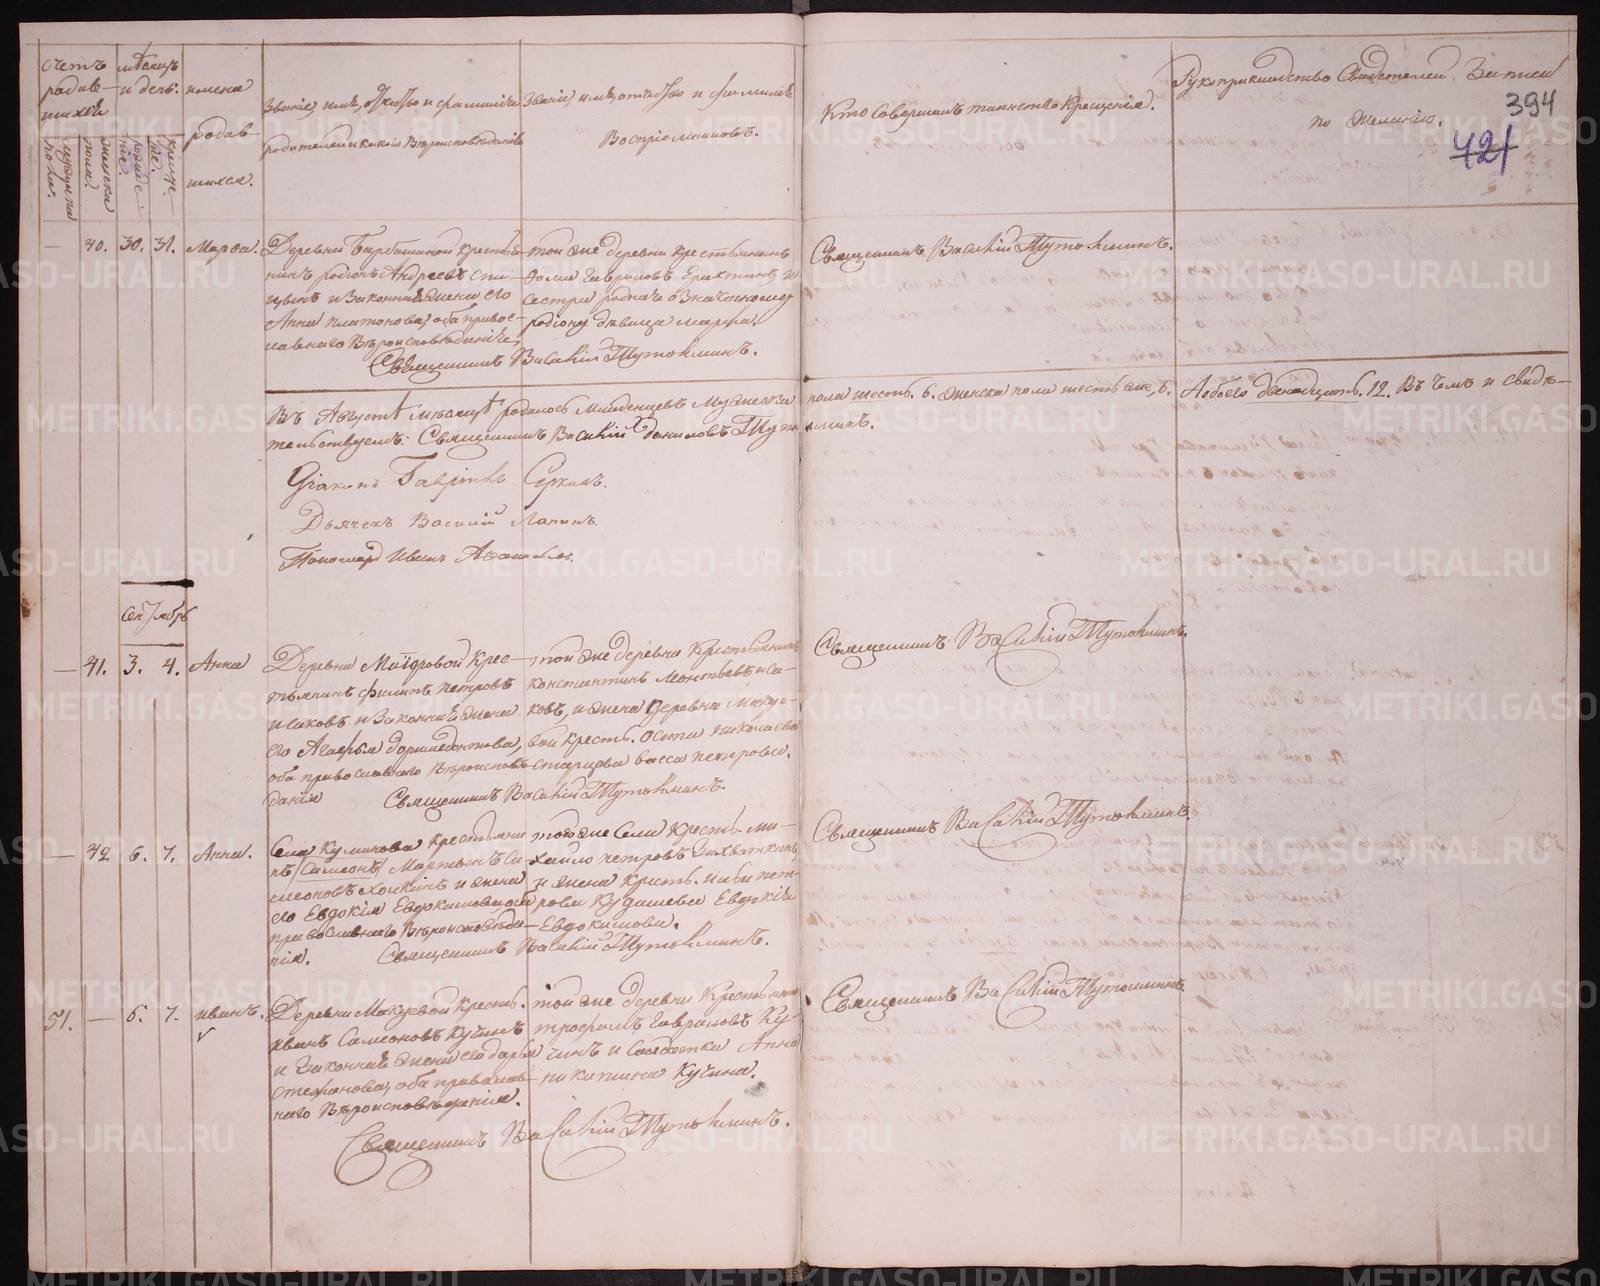 счетъ
родив-
шихся
мѣсяцъ
и день.
имена
родив-
шихся.
мужеска
пола.
женска
пола.
рожде-
ніе.
креще-
ніе.
Званіе, имя, отчество и фамилія
родителей и какого Вѣроисповѣданія
Званіе, имя, отчество и фамилія
Воспріемниковъ.
Кто Совершалъ таинство Крещенія.
Рукоприкладство Свидетелей Записи
по желанію.
394
421
— 40. 30. 31. Марѳа.
Деревни Барабановой крестья-
нинъ родіонъ Андреевъ
и Законная жена его
Анна платонова, оба правос-
лавнаго Вѣроисповѣданія,
Священникъ Василій Тутолминъ.
той же деревни крестьянинъ
Гавриловъ и
сестра родная означенному
родіону девица Марѳа.
Священникъ Василій Тутолминъ.
Въ Августѣ мѣсяцѣ родилось младенцевъ Мужеска пола шесть. 6. женска пола шесть же, 6. А обоего двенадцать. 12. Въ чемъ и свидѣ-
тельствуемъ: Священникъ Василій даниловъ Тутолминъ.
Діаконъ Гавріилъ Серкинъ.
Дьячекъ Василій Лапинъ.
Пономарь Иванъ
Сентябрь
— 41. 3. 4. Анна
Деревни Крес-
тьянинъ филипъ петровъ
исаковъ и Законная жена
его Агафья дормидонтова,
оба православнаго Вѣроиспов-
данія Священникъ Василій Тутолминъ.
той же деревни Крестьянинъ
константинъ Леонтьевъ Иса-
ковъ, и жена деревни Макуе-
вой кресть. Осипа николаева
старцева васса петрова.
Священникъ Василій Тутолминъ.
— 42. 6. 7. Анна.
Села Куликова Крестьяни-
нъ Мартынъ Си-
меоновъ и жена
его Евдокія Евдокимова оба
православнаго Вѣроисповѣда-
нія. Священникъ Василій Тутолминъ.
того же Села Кресть. ми-
хаилъ петровъ
и жена Кресть. пет-
рова Кудашева Евдокія
Евдокимова.
Священникъ Василій Тутолминъ.
51. — 6. 7. иванъ.
Деревни Макуевой Кресть.
иванъ Самсоновъ Кучинъ
и Законная жена его дарья
степанова, оба православ-
наго Вѣроисповѣданія.
Священникъ Василій Тутолминъ.
той же деревни Крестьянинъ
трофимъ Гавриловъ Ку-
чинъ и солдатка Анна
никитина Кучина.
Священникъ Василій Тутолминъ.